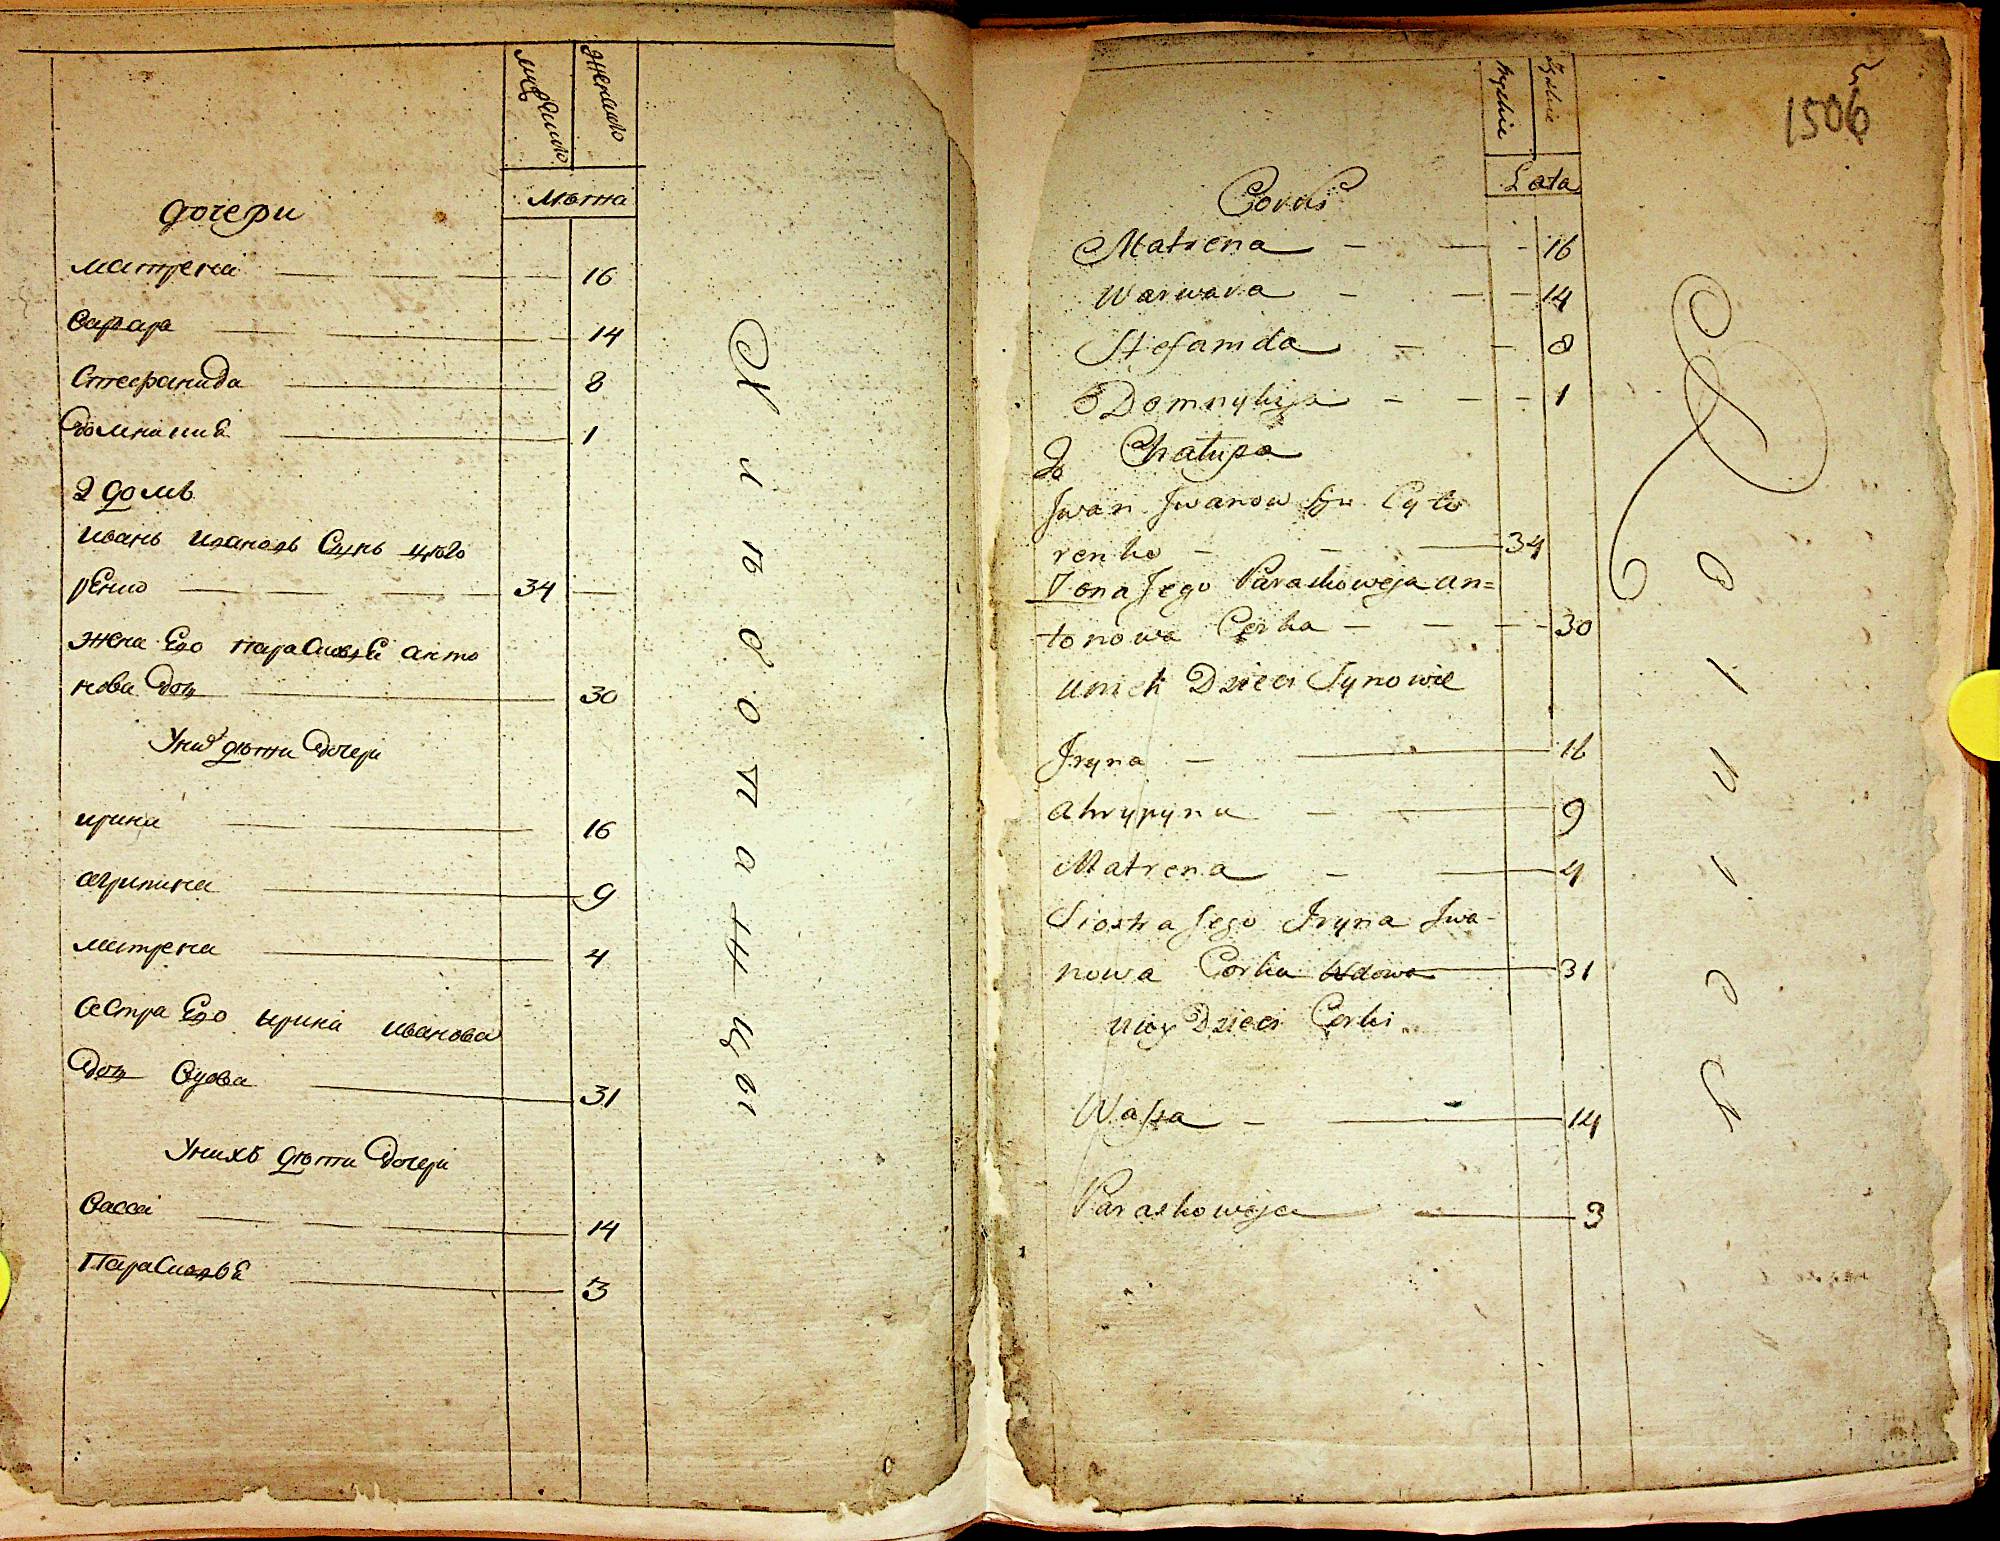 мужеско
женско
Лѣта
дочери
матрена 16
Варвара 14
Стефанида 8
домникия 1
2 домъ
иванъ ивановъ Сынъ цыто
ренко 34
жена Его параСковея анто
нова доч 30
Уних дѣти дочери
ирина 16
агрипина 9
матрена 4
сестра Его ирина иванова
доч вдова 31
Унихъ дѣти дочери
васса 14
ПараСковея 3
1506
Męskie
Żeńskie
Lata
Corki
Matrena 16
Warwara 14
Stefanida 8
Domnykija 1
2o Chałupa
Jwan Jwanow Syn Cyto
renko 34
Żona Jego Paraskoweja An=
tonowa Corka 30
unich Dzieci Synowie
Jryna 16
Ahrypyna 9
Matrena 4
Siostra Jego Jryna Jwa-
nowa Corka Wdowa 31
uiey Dzieci Corki
Wassa 14
Paraskoweja 3